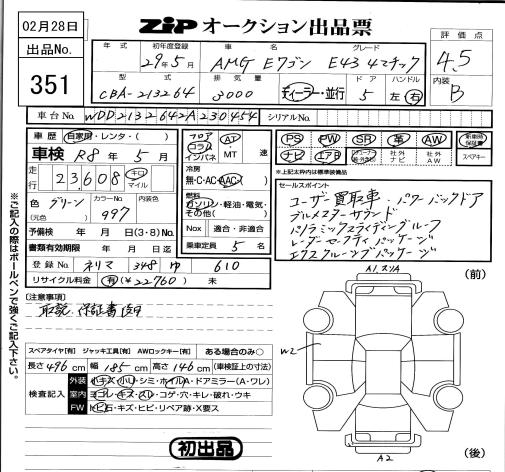 02月28日
ZIP オークション出品票
出品No.
351
年式 初年度登録 車名 グレード
29年5月 AMG Eワゴン E43 4マチック
評価点
4.5
内装
B
型式 排気量 ドア ハンドル
CBA-213264 3000 ディーラー・並行 5 左 右
車台No. WDD2132642A230454 シリアルNo.
車歴 自家用・レンタ・( )
車検 R8年5月
走行 23,608 キロ マイル
色 グリーン カラーNo. 997 内装色
(元色)
予備検 年 月 日(3・8)No.
書類有効期限 年 月 日迄
登録No. ネリマ 348 ゆ 610
リサイクル料金 有(¥22760) 未
フロア コラム インパネ AT・MT 速
冷房
無・C・AC・AAC
燃料
ガソリン・軽油・電気・その他( )
Nox 適合・非適合
乗車定員 5 名
PS PW SR 革 AW 新車時保証書
ナビ エアB 社外ナビ 社外AW スペアキー
※上記太枠内は標準装備品
セールスポイント
ユーザー買取車・パワーバックドア
ブルメスターサウンド
パノラミックスライディングルーフ
レーダーセーフティパッケージ
エクスクルーシブパッケージ
[注意事項]
取説、保証書
※ご記入の際はボールペンで強くご記入下さい。
スペアタイヤ[有] ジャッキ工具[有] AWロックキー[有] ある場合のみ○
長さ496cm 幅185cm 高さ146cm (車検証上の寸法)
検査記入
外装 小キズ・小U・シミ・ホイルA・ドアミラー(A・ワレ)
室内 ヨゴレ・キズ・スレ・コゲ・穴・キレ・破れ・ウキ
FW トビ石・キズ・ヒビ・リペア跡・X要ス
初出品
A1.スリA
(前)
W2
A2
(後)